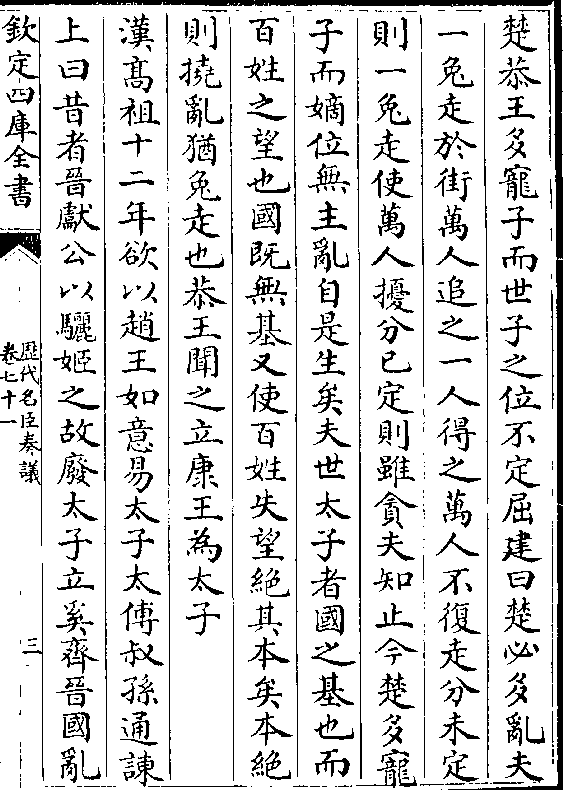 楚恭王多寵子而世子之位不定屈建曰楚必多亂夫
一兔走於街萬人追之一人得之萬人不復走分未定
則一兔走使萬人擾分已定則雖貪夫知止今楚多寵
子而嫡位無主亂自是生矣夫世太子者國之基也而
百姓之望也國既無基又使百姓失望絶其本矣本絶
則撓亂猶兔走也恭王聞之立康王為太子
漢髙祖十二年欲以趙王如意易太子太傅叔孫通諫
上曰昔者晉獻公以驪姬之故廢太子立奚齊晉國亂
欽定四庫全書
歷代名臣奏議
卷七十一
三